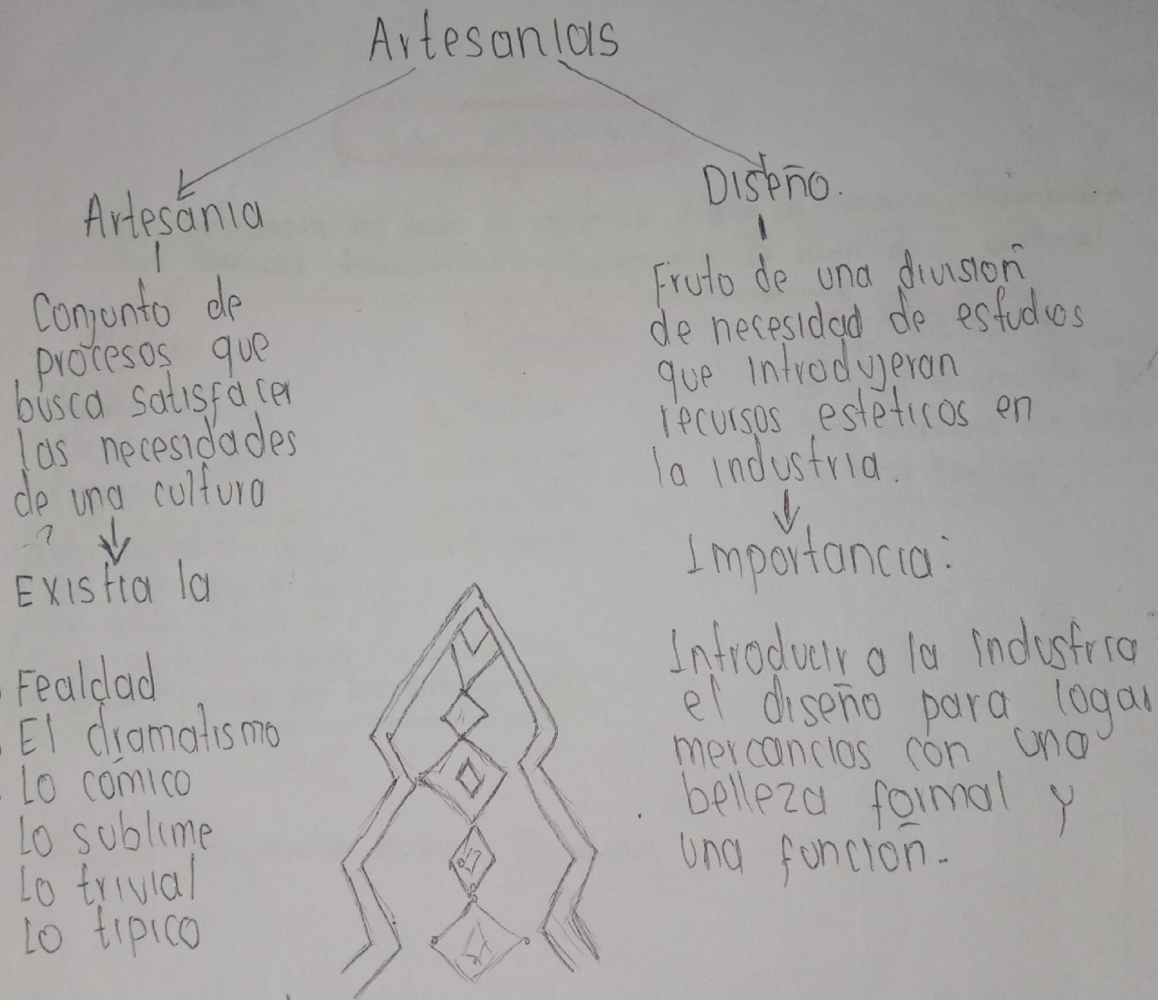 Artesanias
Artesánia
Conjunto de
procesos que
busca satisfacer
las necesidades
de una cultura
Existia la
Fealdad
El dramatismo
Lo cómico
Lo sublime
Lo trivial
Lo tipico
Diseño.
Fruto de una división
de necesidad de estudios
que introdujeran
recursos estéticos en
la industria.
Importancia:
Introducir a la industria
el diseño para logar
mercancias con una
belleza formal y
una función.